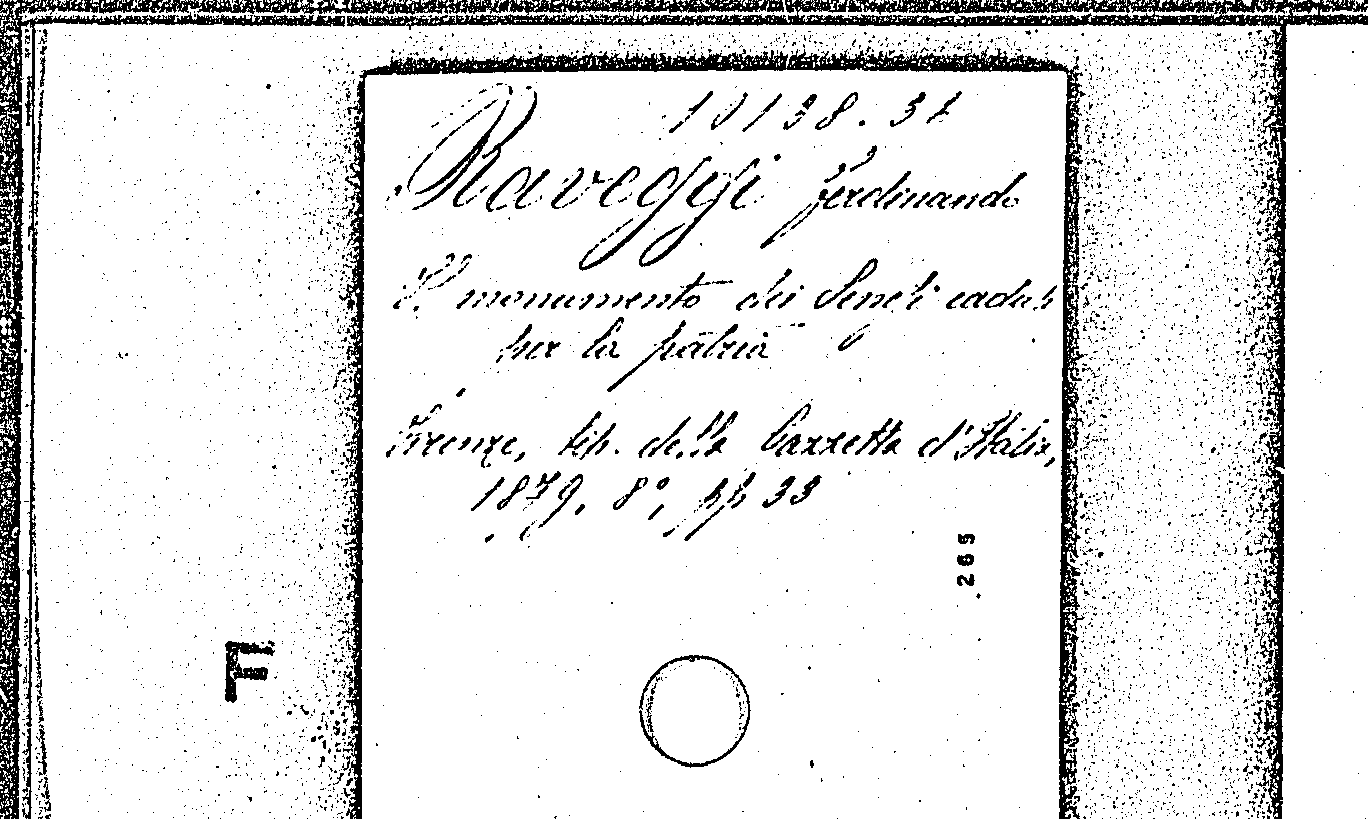 10138.31
Raveggi Ferdinando
Il monumento dei Senesi caduti
per la patria
Firenze, tip. della Gazzetta d'Italia,
1879. 8°, pp 33
265
F